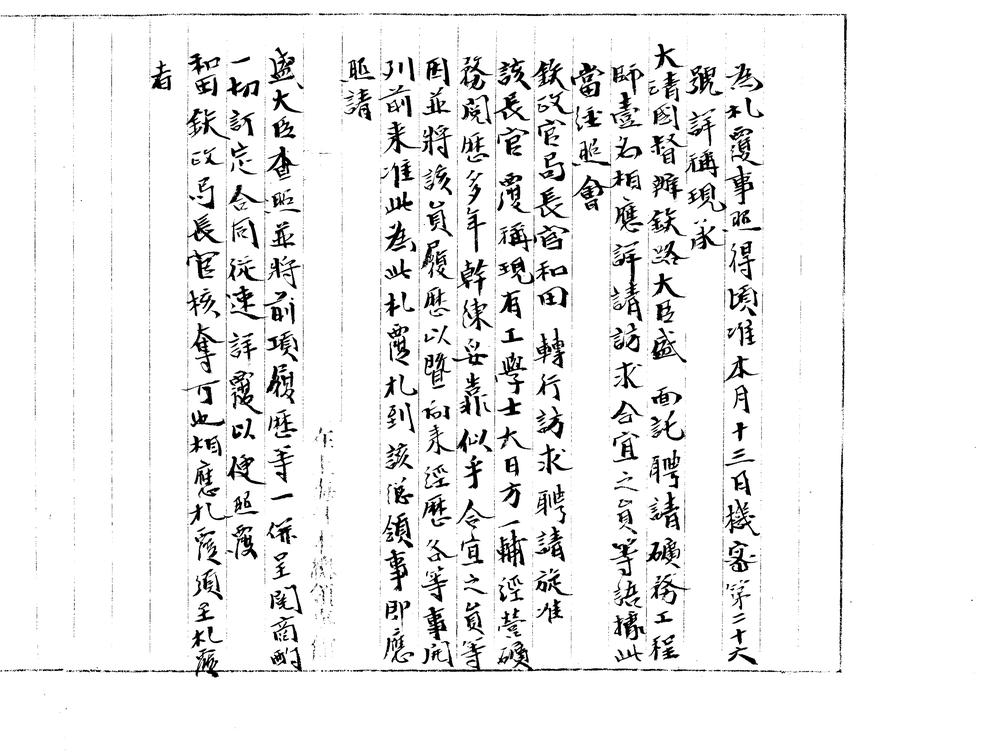 為札覆事照得頃准本月十三日機密第二十六
號詳稱現承
大清國督辦鉄路大臣盛　面託聘請礦務工程
師壹名相應詳請訪求合宜之員等語據此
當經照會
鉄政官局長官和田　轉行訪求聘請旋准
該長官覆稱現有工學士大日方一輔經營礦
務閱歷多年幹練妥靠似乎合宜之員等
因並將該員履歷以暨向來經歷各等事開
列前來准此為此札覆札到該總領事即應
照請
盛大臣查照並將前項履歷等一併呈閱商酌
一切訂定合同從速詳覆以便照覆
和田鉄政局長官核奪可也相應札覆須至札覆
者